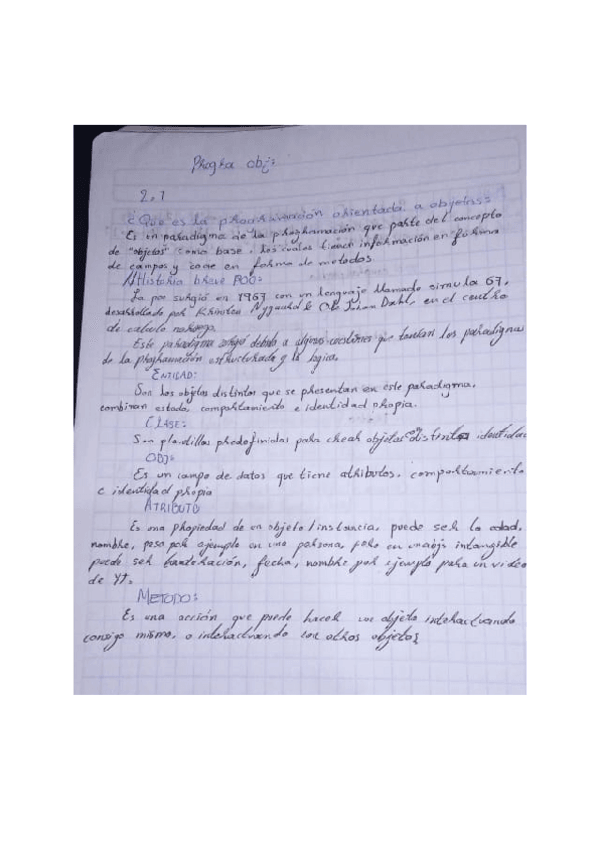 Progra obj:
2.1
¿Que es la programación orientada a objetos:
Es in paradigma de la programación que parte del concepto
de "objetos" como base, los cuales tienen información en forma
de campos y code en forma de metodos.
Historia breve POO:
La poo surgió en 1967 con un lenguaje llamado simula 67,
desarrollado por Kristen Nygaard & Ole Johan Dahl, en el centro
de calculo noruego.
Este paradigma surgió debido a algunas que los paradigma
de la programación estructurada y la logica.
ENTIDAD:
Son los objetos distintos que se presentan en este paradigma,
combinan estado, comportamiento e identidad propia.
CLASE:
Son plantillas predefinidas para crear objetos distinta identidad
OBJ:
Es un campo de datos que tiene atributos, comportamiento
e identidad propia
ATRIBUTO
Es una propiedad de un objeto/instancia, puede ser la edad,
nombre, peso por ejemplo en una persona, pero en intangible
puede ser fecha, nombre por ejemplo para un video
de YT.
METODO:
Es una acción que puede hacer un objeto interactuando
consigo mismo, o interactuando con otros objetos